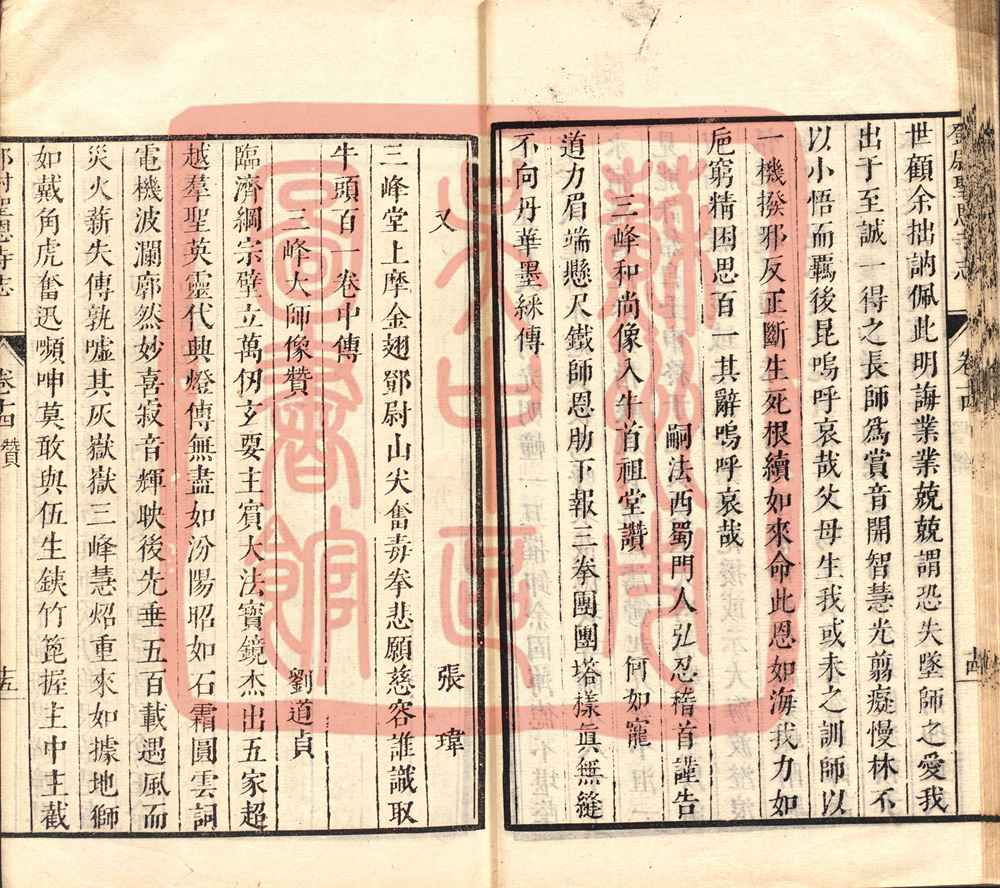 世顧余拙訥佩此明誨業業兢兢謂恐失墜師之愛我
出于至誠一得之長師爲賞音開智慧光翦癡慢林不
以小悟而羈後昆嗚呼哀哉父母生我或未之訓師以
一機撥邪反正斷生死根續如來命此恩如海我力如
巵窮精困思百一其辭嗚呼哀哉
嗣法西蜀門人弘忍稽首謹告
三峰和尚像入牛首祖堂讚
何如寵
道力眉端懸尺鐵師恩肋下報三拳團團塔樣眞無縫
不向丹華墨綵傳
卷十四
又
張瑋
三峰堂上摩金翅鄧尉山尖奮毒拳悲願慈容誰識取
牛頭百一卷中傳
三峰大師像贊
劉道貞
臨濟綱宗壁立萬仞玄要主賓大法寶鏡杰出五家超
越羣聖英靈代興燈傳無盡如汾陽昭如石霜圓雲詞
電機波瀾廓然妙喜寂音輝映後先垂五百載遇風而
災火薪失傳孰噓其灰嶽嶽三峰慧炤重來如據地獅
如戴角虎奮迅嚬呻莫敢與伍生鋏竹箆握主中主截
鄧尉聖恩寺志
卷十四
贊
十五
蘇州市吳中區圖書館